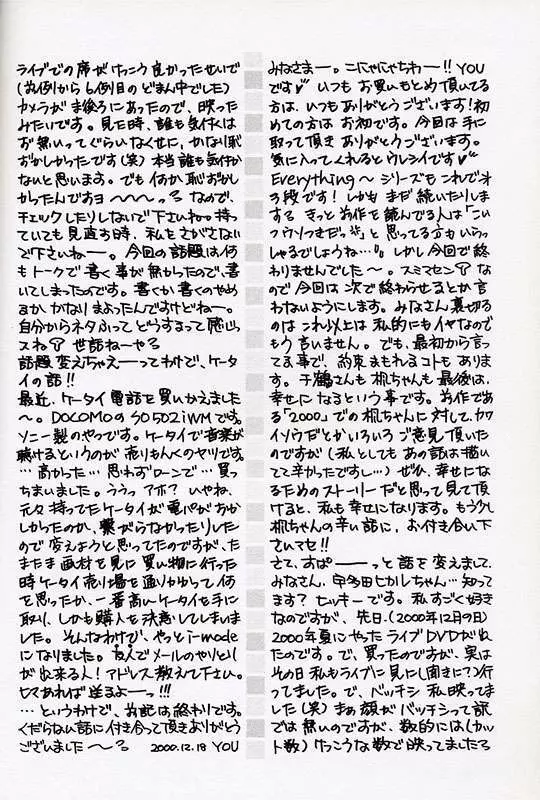 みなさまー。こにゃにゃちわー!! YOU
です♥ いつもお買いもとめ頂いてる
方は、いつもありがとうございます!初
めての方はお初です。今回は手に
取って頂きありがとうございます。
気に入ってくれるとウレシイです♥
Everything〜シリーズもこれでオ
3段です!しかもまだ続いたりしま
する きっと前作を読んでる人は「こい
つウソつきだっ」と思ってる方もいらっ
しゃるでしょうね…。しかし今回で終
わりませんでした〜。スミマセン な
ので今回は次で終わらせるとか言
わないようにします。みなさん裏切る
のはこれ以上は私的にもイヤなので
もう言いません。でも、最初から言っ
てる事で、約束まもれるコトもありま
す。千鶴さんも梶ちゃんも最後は、
幸せになるという事です。前作であ
る「2000」での梶ちゃんに対して、カワ
イソウだとかいろいろご意見頂いた
のですが(私としてもあの話は描い
てて辛かったですし…)ぜひ、幸せにな
るためのストーリーだと思って見て頂
けると、私も幸せになります。もう少し
梶ちゃんの辛い話に、お付き合い下
さいマセ!!
さて、すぱーーーっと話を変えまして、
みなさん、宇多田ヒカルちゃん…知って
ます?ヒッキーです。私すごく好き
なのですが、先日(2000年12月9日)
2000年夏にやったライブDVDが出れ
たのです。で、買ったのですが、実は
その日私もライブに見に(聞きに?)行
ってました。で、バッチシ私映ってま
した(笑)まあ顔がバッチシって訳
では無いのですが、数的には(カッ
ト数)けっこうな数で映ってましたろ
ライブでの席がけっこう良かったせいで
(前列から6列目のどまん中でした)
カメラがま後ろにあったので、映った
みたいです。見た時、誰も気付くは
お無いってぐらいなくせに、かなり恥
おかしかったです(笑)本当誰も気付か
ないと思います。でも何か恥おかし
かったんですヨ〜〜〜っろ なので、
チェックしたりしないで下さいね。持っ
ていても見直すお時、私をさがさない
で下さいねー。今回の話題は何
もトークで書く事が無かったので、書
いてしまったのです。書くか書くのやめ
るか、かなりまよったんですけどねー。
自分からネタふって どうするって感じっ
スね 世話ねーやろ
話題変えちゃえーーってわけで、ケータ
イの話!!
最近、ケータイ電話を買いかえました
〜。DOCOMOのSO502iWMです。
ソニー製のやつです。ケータイで音楽が
聴けるというのが売りもんくのヤツです
…高かった…思わずローンで…買っ
ちまいました。ううっ アホ? いやね、
元々持ってたケータイが電パがおか
しかったのか、繋がらなかったりした
ので変えようと思ってたのですが、た
またま画材を見に買い物に行った
時ケータイ売り場を通りかかって何
を思ったか、一番高いケータイを手に
取り、しかも購入を決意してしまいま
した。そんなわけで、やっとi-mode
になりました。友人でメールのやりとり
が出来る人!アドレス教えて下さい。
ヒマあれば送るよーっ!!!
…というわけで、お記は終わりです。
くだらない話に付き合って頂きありがとう
ございました〜〜ろ 2000.12.18 YOU